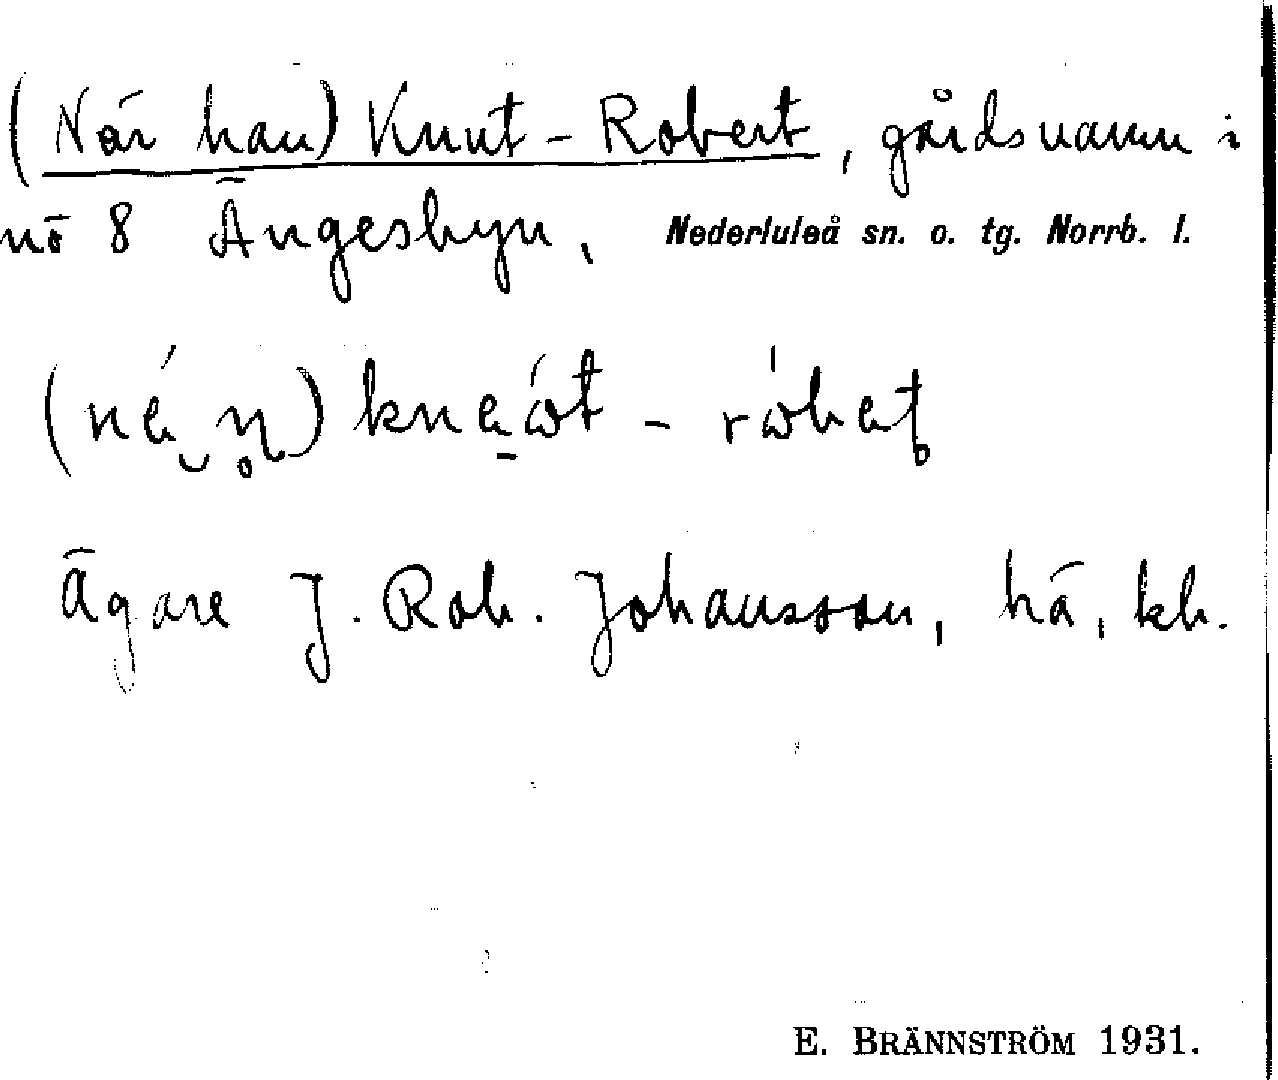 (När han) Knut-Robert, gårdsnamn i
nö 8 Ängesbyn, Nederluleå sn. o. tg. Norrb. l.
Ägare J. Rob. Johansson, hä, kb.
E. BRÄNNSTRÖM 1931.